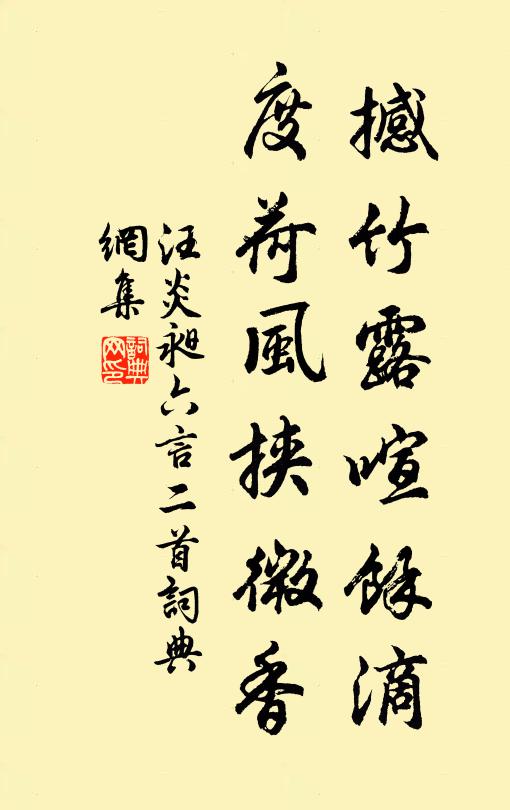 撼竹露喧餘滴
度荷風挾微香
汪炎昶六言二首詞典
網集
詞典網印